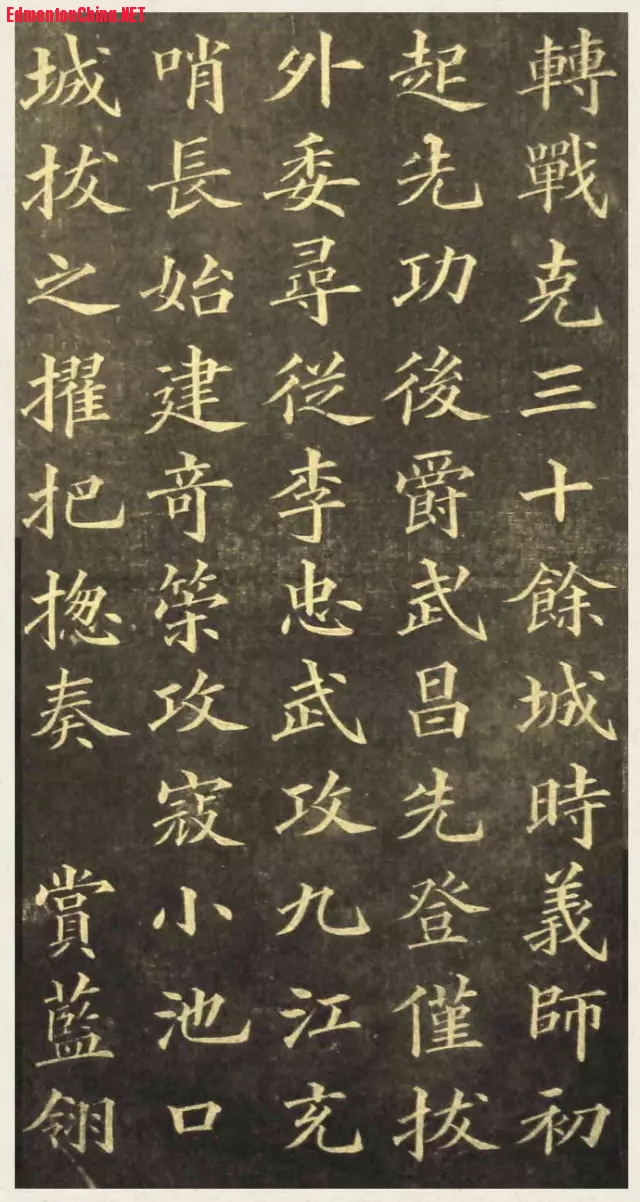 EdmontonChina.NET
轉戰克三十餘城時義師初
起先功後爵武昌先登僅拔
外委尋從李忠武攻九江充
哨長始建奇策攻寇小池口
城拔之擢把揔奏 賞藍翎